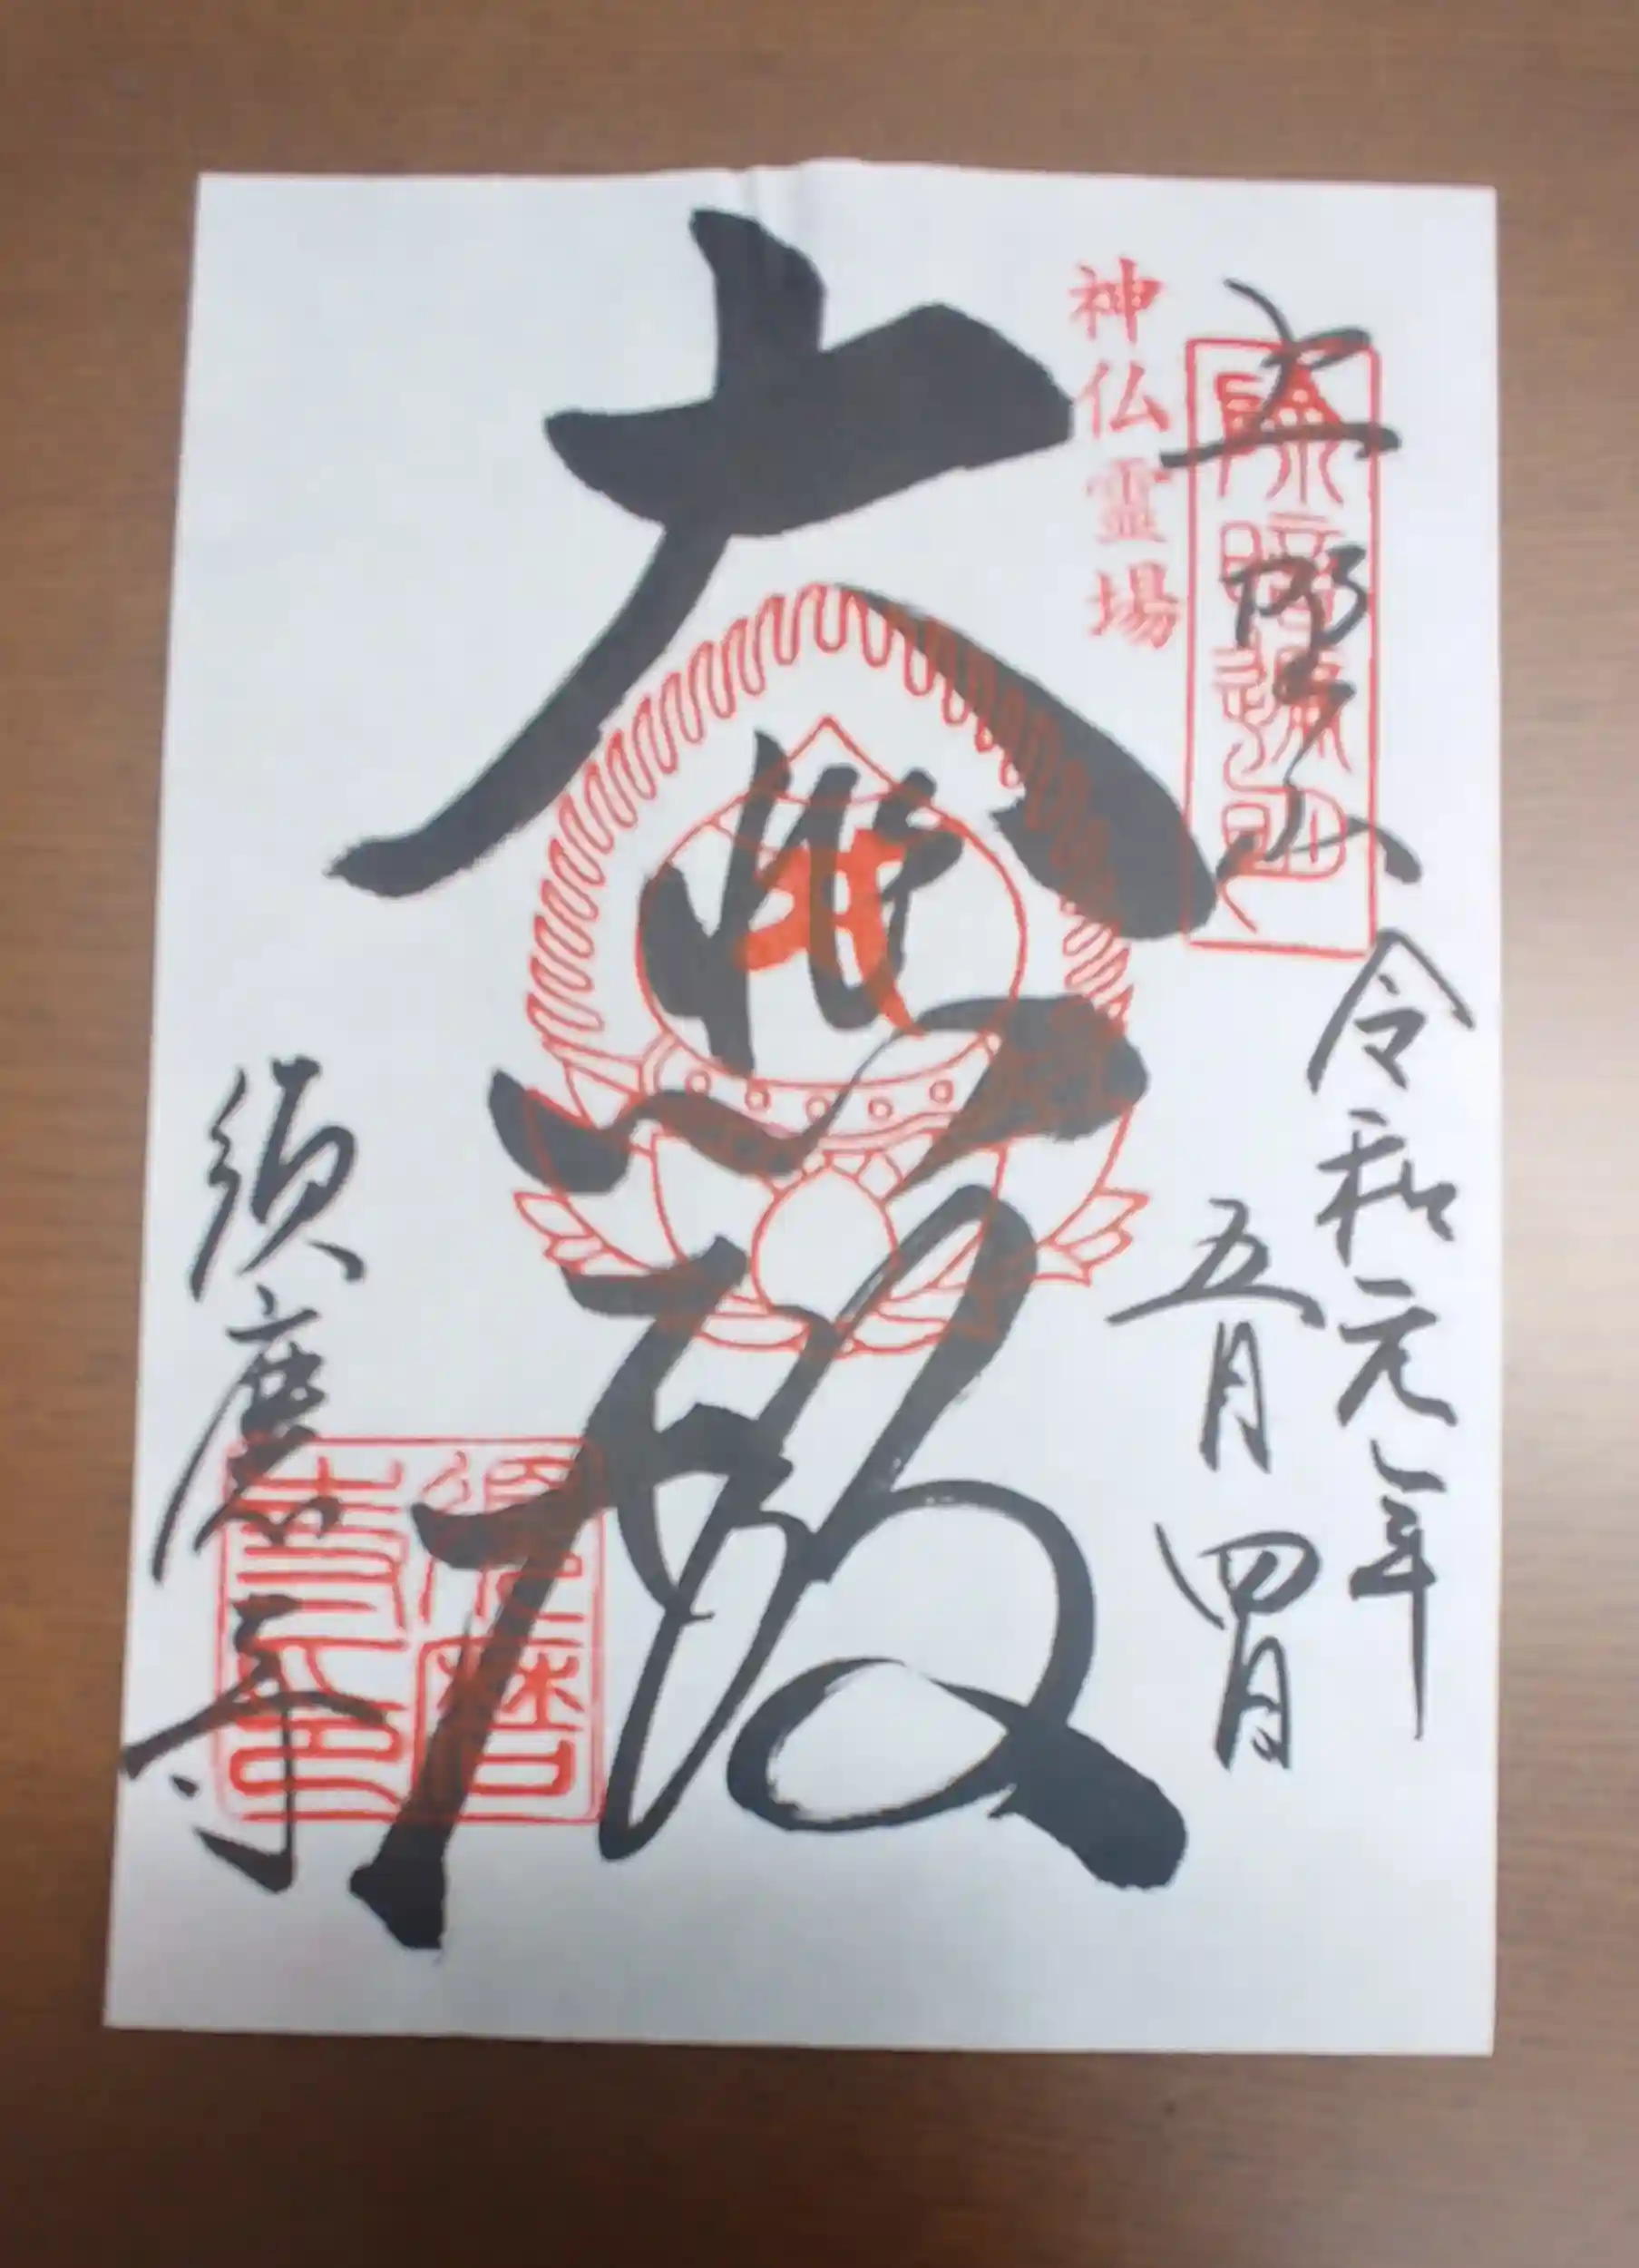 上野山
神仏霊場
令和元年
五月四日
大悲殿
須磨寺
須磨寺印